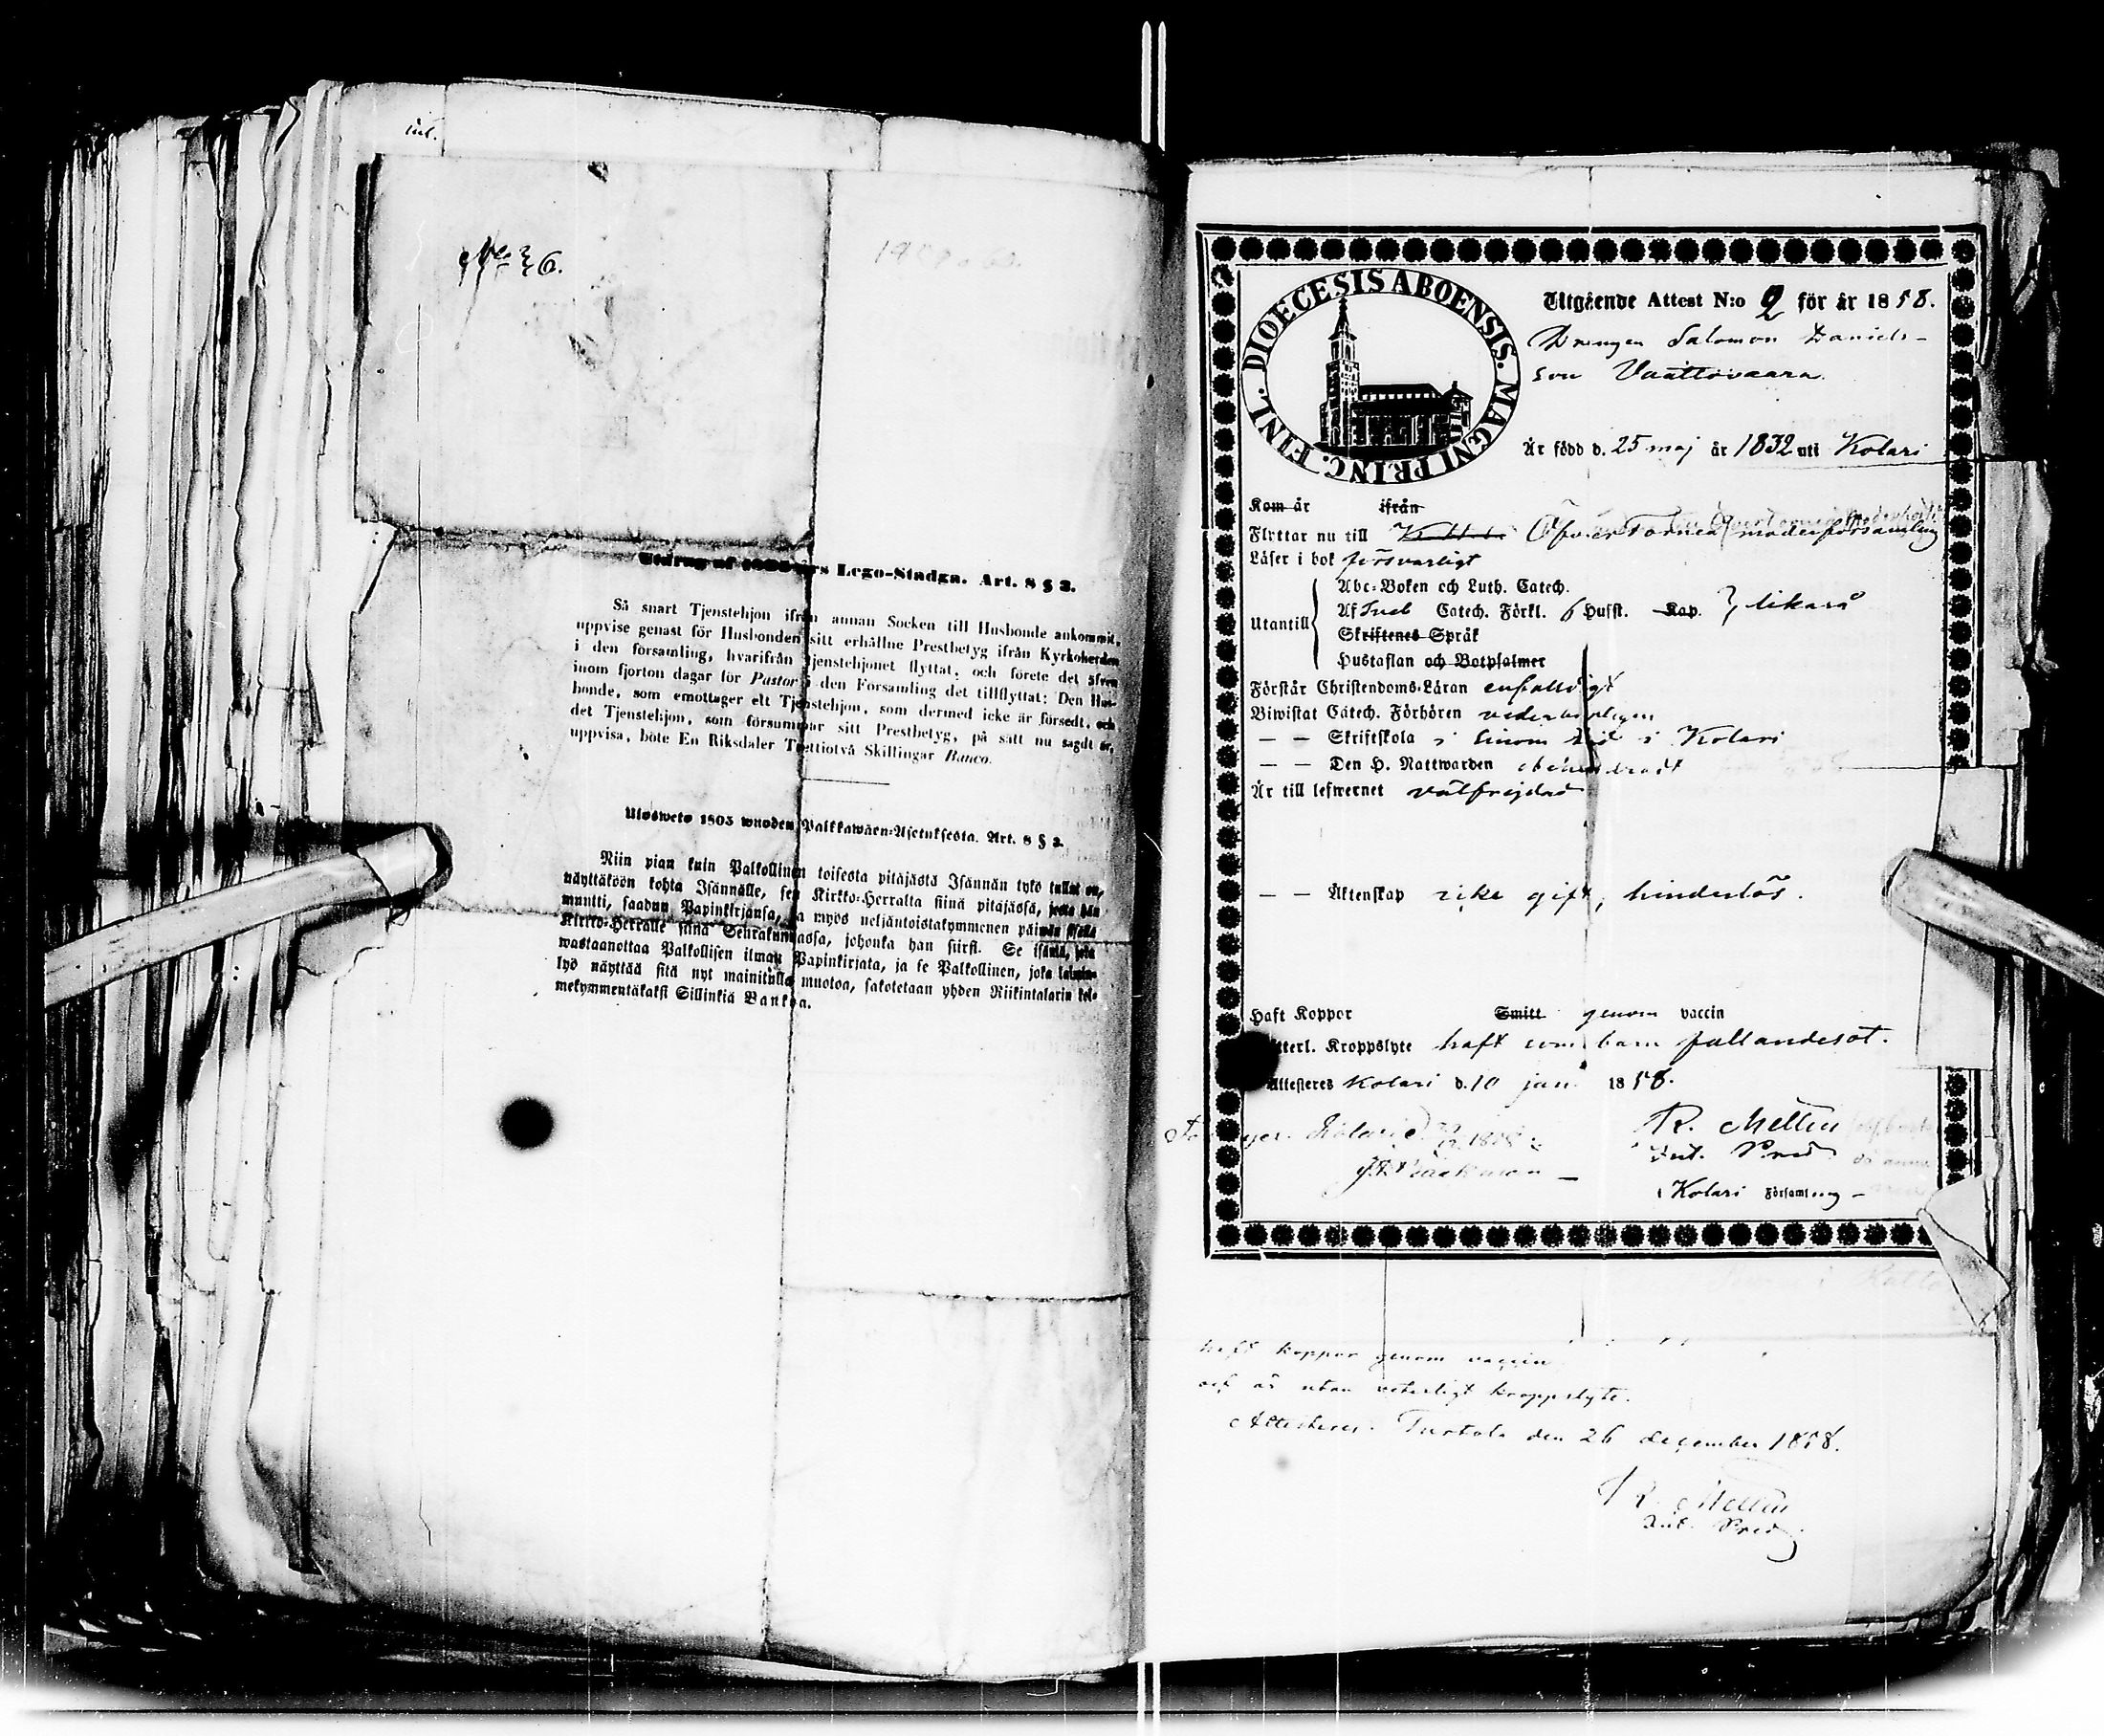 int.
No 36.
Utdrag af 1805 års Lego-Stadga. Art. 8 § 3.
Så snart Tjenstehjon ifrån annan Socken till Husbonde ankommit,
uppvise genast för Husbonden sitt erhållne Prestbetyg ifrån Kyrkoherden
i den församling, hvarifrån tjenstehjonet flyttat, och förete det äfven
inom fjorton dagar för Pastor i den Församling det tillflyttat: Den Hus-
bonde, som emottager ett Tjenstehjon, som dermed icke är försedt, och
det Tjenstehjon, som försummar sitt Prestbetyg, på sätt nu sagdt är,
uppvisa, böte En Riksdaler Trettiotvå Skillingar Banco.
Ulosweto 1805 wuoden Palkkawäen-Asetuksesta. Art. 8 § 3.
Niin pian kuin Palkollinen toisesta pitäjästä Isännän tykö tullut on,
näyttäköön kohta Isännälle, sen Kirkko-Herralta siinä pitäjässä, josta hän
muutti, saadun Papinkirjansa, ja myös neljäntoistakymmenen päiwän sisällä
Kirkko-Herralle siinä Seurakunnassa, johonka hän siirsi. Se isäntä, joka
wastaanottaa Palkollisen ilman Papinkirjata, ja se Palkollinen, joka laimin-
lyö näyttää sitä nyt mainitulla muotoa, sakotetaan yhden Riikintalarin kol-
mekymmentäkaksi Sillinkiä Bankoa.
FINL. DIOECESIS ABOENSIS. MAGNI PRINC.
Utgående Attest N:o 2 för år 1858.
Drengen Salomon Daniels-
son Vaattovaara.
Är född d. 25 maj år 1832 uti Kolari
Kom år ifrån
Flyttar nu till Öfver Torneå moderförsamling
Läser i bok försvarligt
Abc-Boken och Luth. Catech.
Utantill Af Sveb Catech. Förkl. 6 Hufst. Kap. } likaså
Skriftenes Språk
Hustaflan och Botpsalmer
Förstår Christendoms-Läran enfaldigt
Biwistat Catech. Förhören vederbörligen
— — Skriftskola i sinom tid i Kolari
— — Den H. Nattwarden
Är till lefwernet välfrejdad
— — Äktenskap icke gift, hinderlös.
Haft Koppor Smitt genom vaccin
Wetterl. Kroppslyte haft som barn fallandesot.
Attesteres Kolari d. 10 jan. 1858.
R. Mellin
Int. Pred.
Kolari Församling
haft koppor genom vaccin
och är utan veterligt kroppslyte.
Attesteres. Turtola den 26 december 1858.
R. Mellin
Int. Pred.